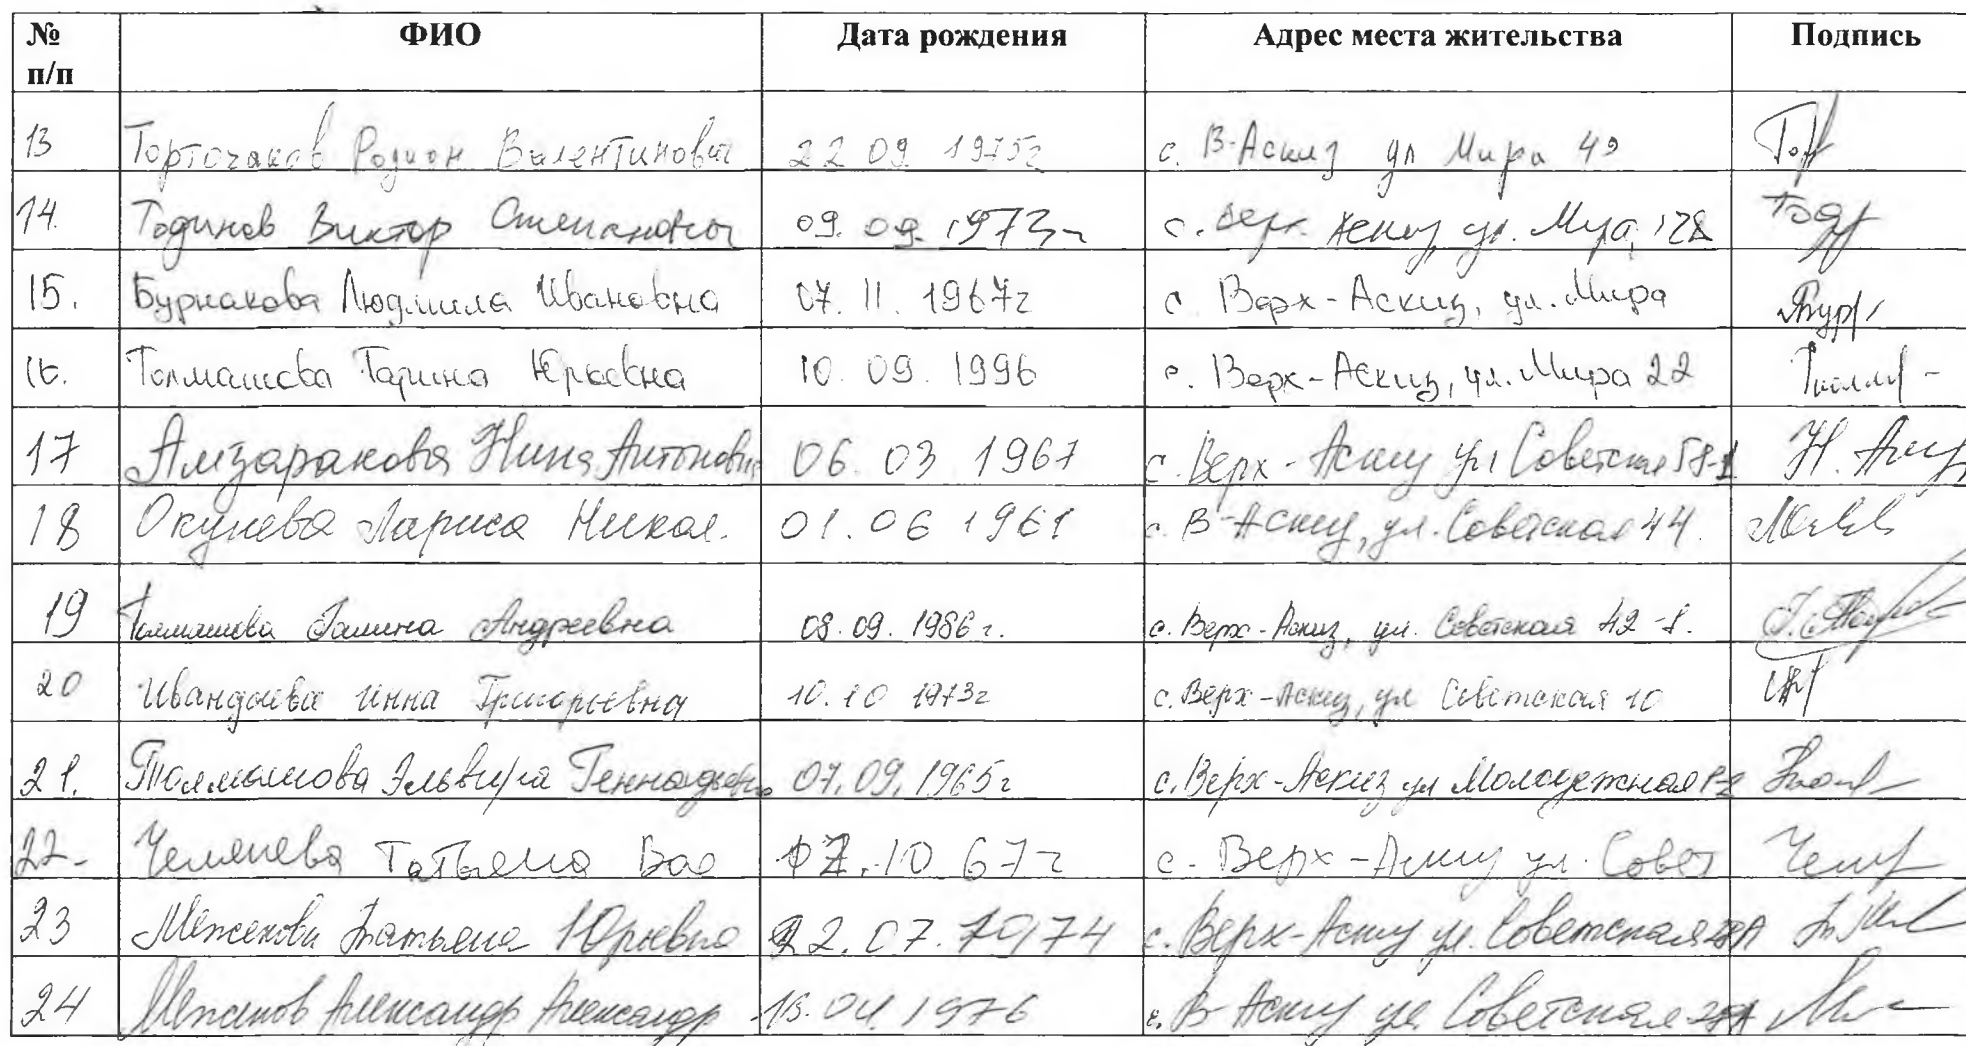 № п/п ФИО Дата рождения Адрес места жительства Подпись
13 Торточаков Родион Валентинович 22 09 1975г с. В-Аскиз ул Мира 49 Тор
14. Тодинов Виктор Степанович 09. 09. 1973г с. Верх. Аскиз ул. Мира, 12 Тод
15. Бурнакова Людмила Ивановна 07. 11. 1967г с Верх-Аскиз, ул. Мира Бур
16. Толмашова Тарина Юрьевна 10. 09. 1996 с. Верх-Аскиз, ул. Мира 22
17 Амзаракова Нина Антоновна 06. 03 1967 с. Верх-Аскиз ул Советская 58-1 Н. Амз
18 Окунева Лариса Никол. 01. 06 1961 с. В-Аскиз, ул. Советская 44.
19 Толмашова Галина Андреевна 08. 09. 1986г. с. Верх-Аскиз, ул. Советская 42-1.
20 Ивандаева Инна Григорьевна 10. 10 1973г с. Верх-Аскиз, ул Советская 10
21. Толмашова Эльвира Геннадьевн 07. 09. 1965г с. Верх-Аскиз ул Молодежная
22- Челчева Татьяна Вас 10 67г с. Верх-Аскиз ул. Совет
23 Межекова Татьяна Юрьевна 22. 07. 1974 с. Верх-Аскиз ул. Советская
24 Межеков Александр Александр 13. 04. 1976 с. В-Аскиз ул. Советская